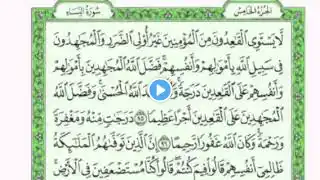 الجزء الخامس
سورة النساء
لَّا يَسْتَوِى الْقَٰعِدُونَ مِنَ الْمُؤْمِنِينَ غَيْرُ أُو۟لِى الضَّرَرِ وَالْمُجَٰهِدُونَ
فِى سَبِيلِ اللَّهِ بِأَمْوَٰلِهِمْ وَأَنفُسِهِمْ فَضَّلَ اللَّهُ الْمُجَٰهِدِينَ بِأَمْوَٰلِهِمْ
وَأَنفُسِهِمْ عَلَى الْقَٰعِدِينَ دَرَجَةً اللَّهُ الْحُسْنَىٰ وَفَضَّلَ اللَّهُ
الْمُجَٰهِدِينَ عَلَى الْقَٰعِدِينَ أَجْرًا عَظِيمًا ٩٥ دَرَجَٰتٍ مِّنْهُ وَمَغْفِرَةً
وَرَحْمَةً وَكَانَ اللَّهُ غَفُورًا رَّحِيمًا ٩٦ إِنَّ الَّذِينَ تَوَفَّىٰهُمُ الْمَلَٰٓئِكَةُ
ظَالِمِىٓ أَنفُسِهِمْ قَالُوا۟ فِيمَ كُنتُمْ قَالُوا۟ كُنَّا مُسْتَضْعَفِينَ فِى الْأَرْضِ